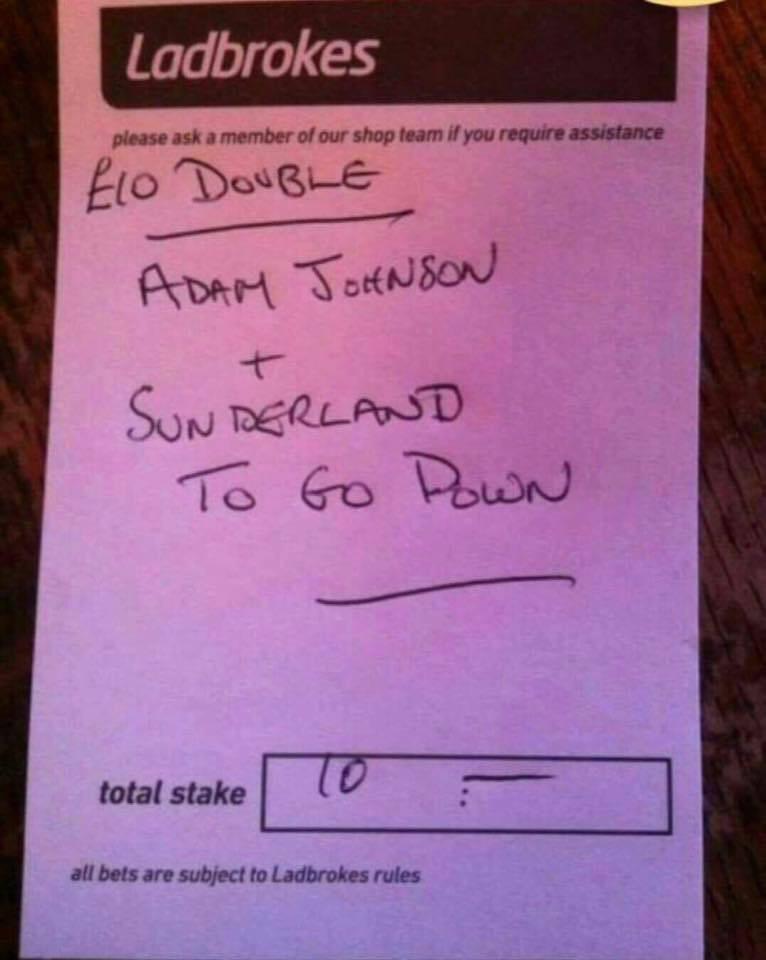 Ladbrokes
please ask a member of our shop team if you require assistance
£10 DOUBLE
ADAM JOHNSON
+
SUNDERLAND
TO GO DOWN
total stake 10 : —
all bets are subject to Ladbrokes rules